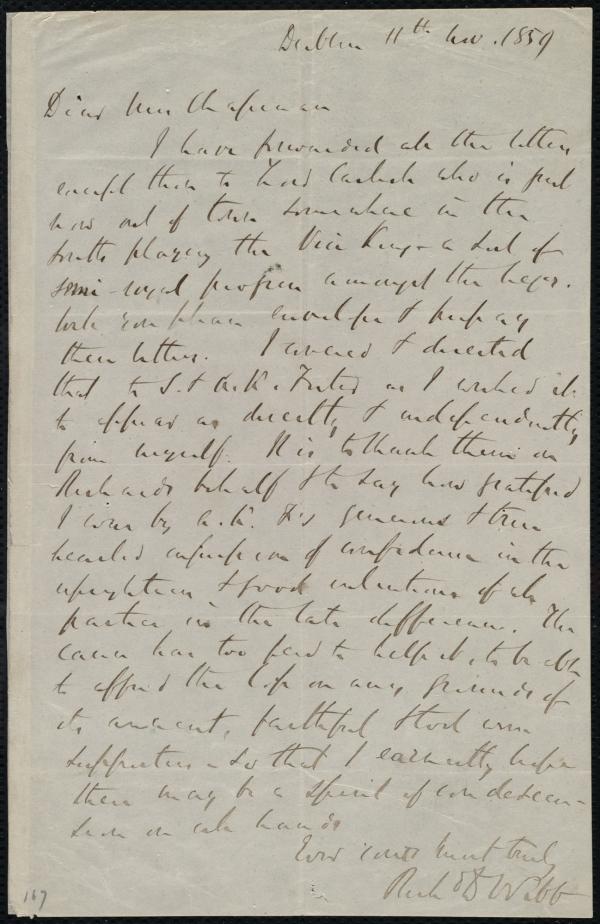 Dublin 11th Nov. 1859
Dear Mrs Chapman
I have forwarded all the letters
except them to Lord Carlisle who is just
now out of town somewhere in the
south playing the Vice King - a sort of
semi-royal progress amongst the
will you please envelope & prepay
these letters. I covered & directed
that to S. & A.K. Foster as I wished it
to appear as directly & independently
from myself. It is to thank them on
Richard's behalf & to say how gratified
I was by A.K.F's generous & true
hearted expression of confidence in the
uprightness & good intentions of all
parties in the late differences. The
cause has too few to help it, to be able
to afford the loss on any grounds of
its ancient, faithful & tool worn
supporters - so that I earnestly hope
there may be a spirit of condescen-
sion on all hands
Ever yours most truly
Richd D Webb
167